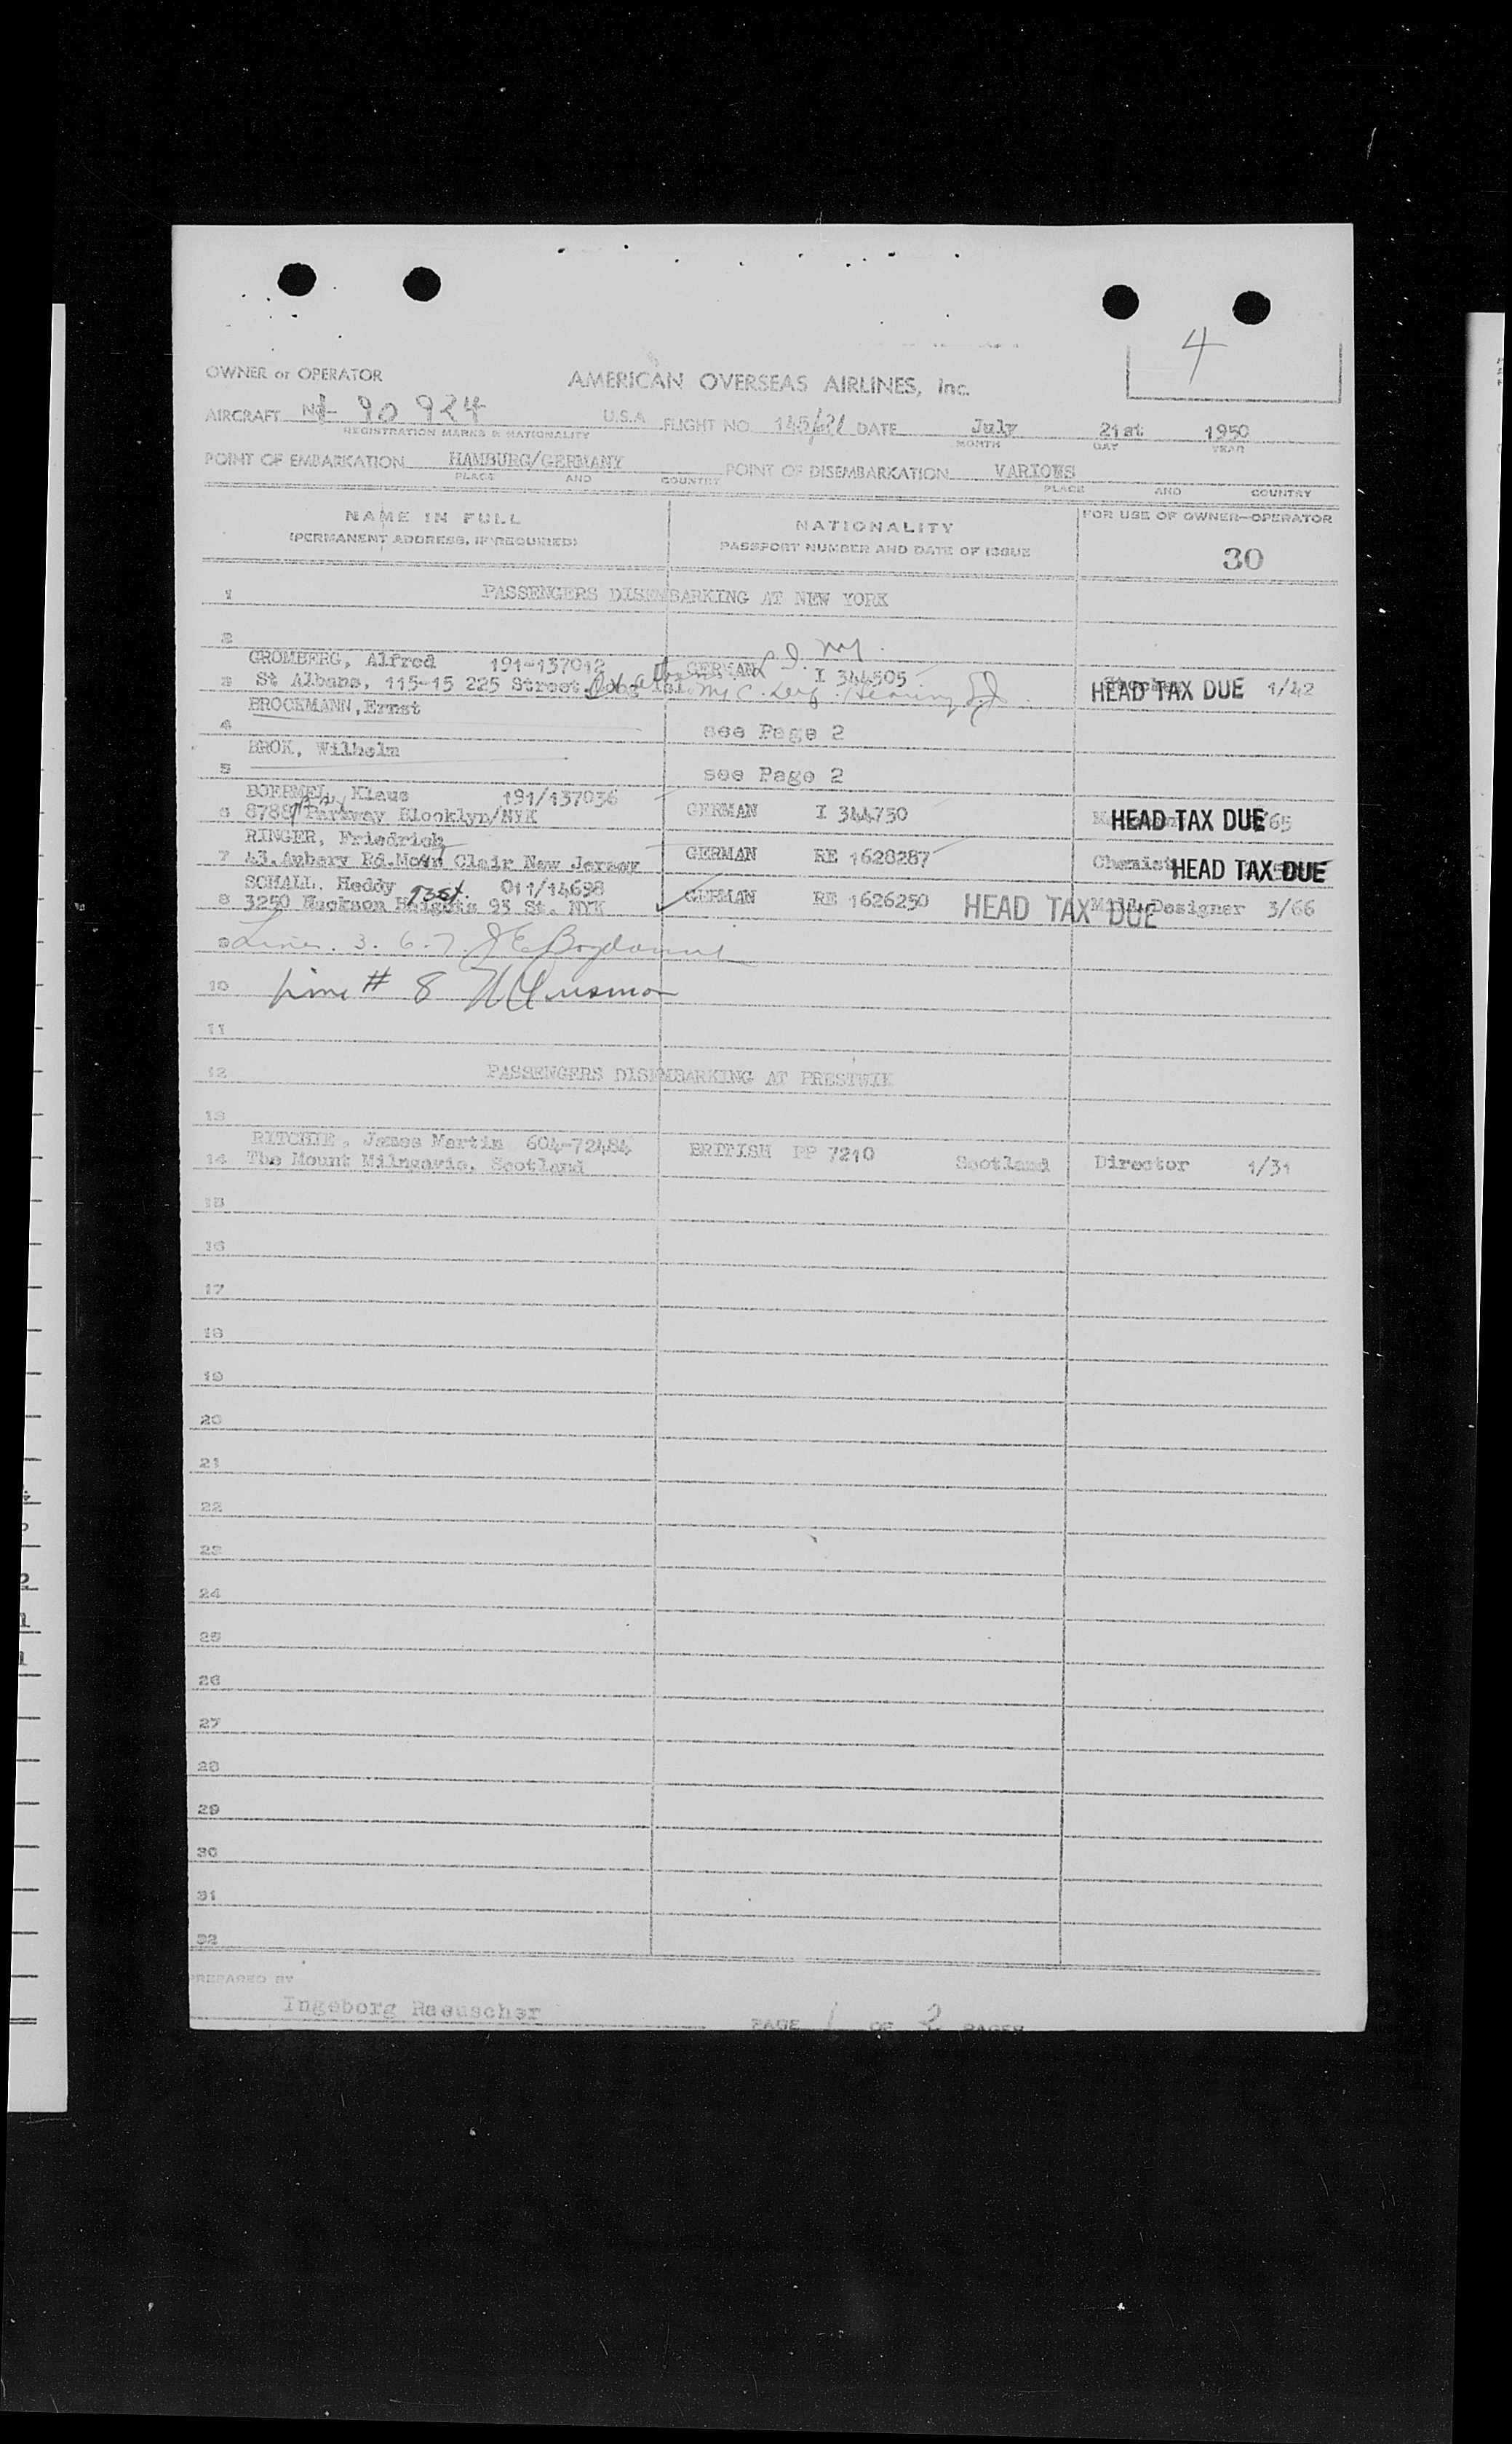 4
OWNER or OPERATOR AMERICAN OVERSEAS AIRLINES, Inc.
AIRCRAFT N 90 924 U.S.A FLIGHT NO. 145/21 DATE July 21st 1950
REGISTRATION MARKS & NATIONALITY MONTH DAY YEAR
POINT OF EMBARKATION HAMBURG/GERMANY POINT OF DISEMBARKATION VARIOWS
PLACE AND COUNTRY PLACE AND COUNTRY
NAME IN FULL NATIONALITY FOR USE OF OWNER-OPERATOR
(PERMANENT ADDRESS, IF REQUIRED) PASSPORT NUMBER AND DATE OF ISSUE 30
1 PASSENGERS DISEMBARKING AT NEW YORK
2
GROMBERG, Alfred 191-137012 GERMAN I 344505
3 St Albans, 115-15 225 Street. Hearing HEAD TAX DUE 1/42
BROCKMANN, Ernst
4 see Page 2
BROK, Wilhelm
5 see Page 2
BOERMEL, Klaus 191/137036
6 8788 Parkway Blooklyn/NYK GERMAN I 344750 HEAD TAX DUE 65
RINGER, Friedrich
7 43. Anbery Rd. Clair New Jersey GERMAN RE 1628287 Chemist HEAD TAX DUE
SCHALL. Heddy 93 St. 011/14698
8 3250 Heights 93 St. NYK GERMAN RE 1626250 HEAD TAX DUE Designer 3/66
9 Lines. 3. 6. 7.
10 Line # 8
11
12 PASSENGERS DISEMBARKING AT PRESTWIK
13
RITCHIE, James Martin 604-72484
14 The Mount Milngavie, Scotland BRITISH PP 7210 Scotland Director 1/31
15
16
17
18
19
20
21
22
23
24
25
26
27
28
29
30
31
32
PREPARED BY
Ingeborg Raeuscher PAGE 1 OF 2 PAGES